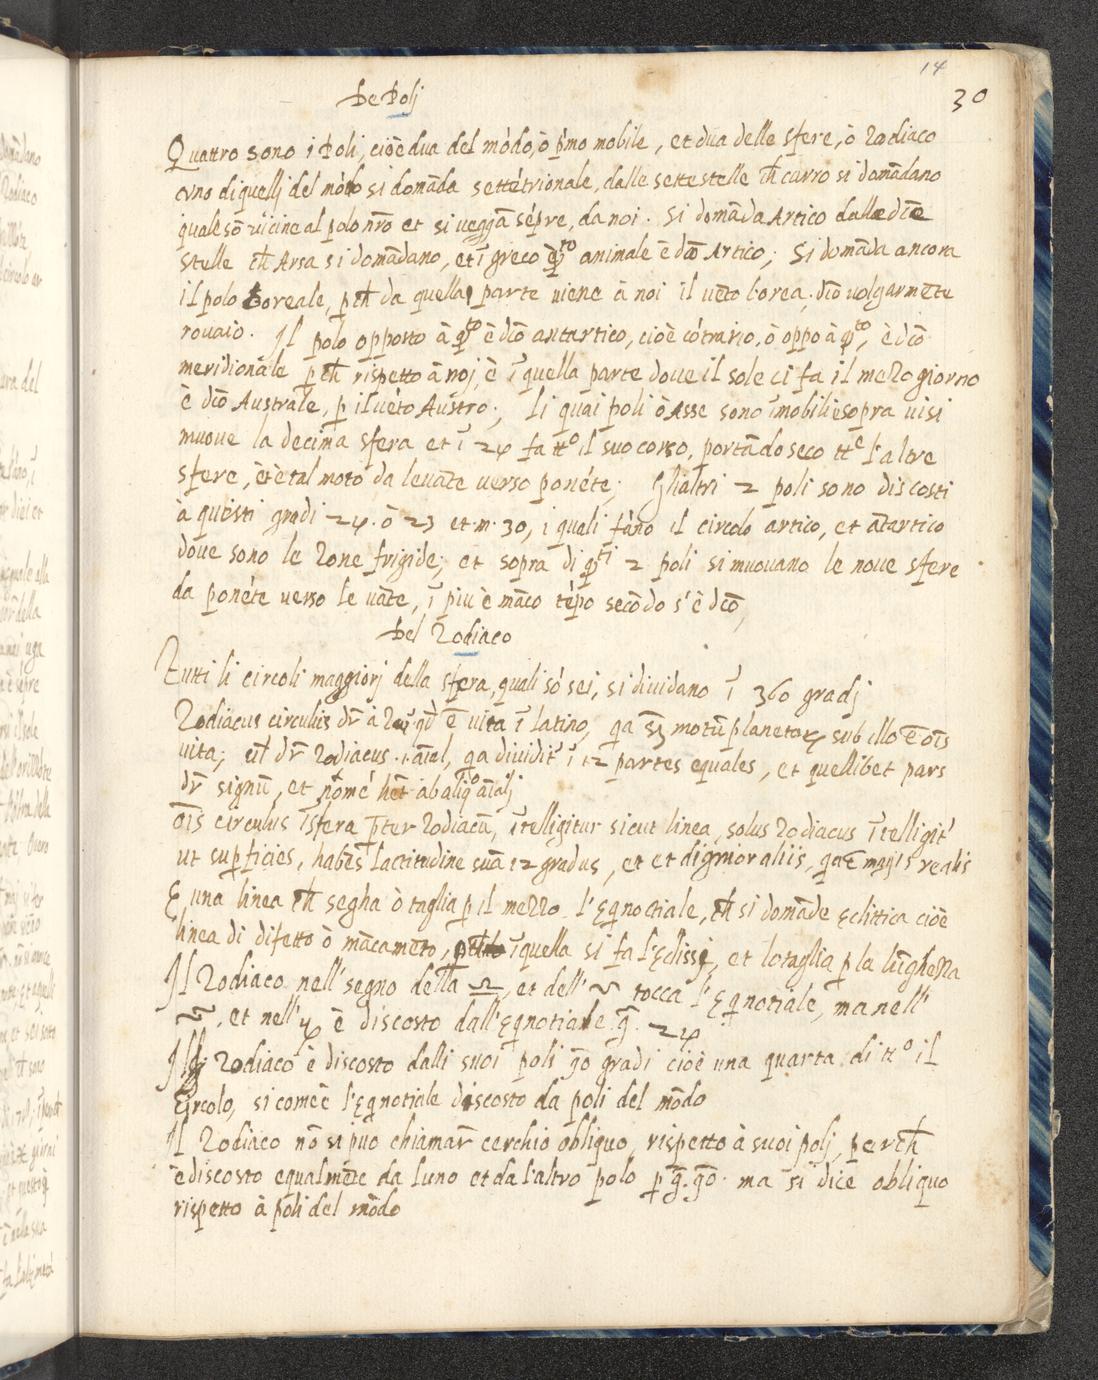 14
30
De Polj
Quattro sono i Poli, cioè dua del mōdo, ò p̄mo mobile, et dua delle sfere, ò Zodiaco
uno di quellj del mōdo si domāda settētrionale, dalle sette stelle ch̄ carro si domādano
quale sō uicine al polo nr̄o et si ueggā sēpre, da noi. Si domāda Artico dalle dc̄e
stelle ch̄ Arsa si domādano, et ī greco q̄to animale è dc̄o Artico; Si domāda ancora
il polo Boreale, p ch̄ da quella parte uiene à noi il uēto borea. dc̄o uolgarmēte
rouaio. Il polo opposto à q̄to è dc̄o antartico, cioè cōtrario, ò oppo à q̄to, è dc̄o
meridionale p ch̄ rispetto à noj, è ī quella parte doue il sole ci fa il mezo giorno
è dc̄o Australe, p il uēto Austro; li quai poli ò Asse sono īmobili e sopra uisi
muoue la decima sfera et ī 24 fa tto il suo corso, portādo seco tte l'altre
sfere, et è tal moto da leuāte uerso ponēte; Gli altri 2 poli sono discosti
à questi gradi 24. ò 23 et m. 30, i quali fāno il circolo artico, et ātartico
doue sono le Zone frigide; et sopra di q̄ti 2 poli si muouano le noue sfere
da ponēte uerso le uāte, ī piu è māco tēpo secōdo s'è dc̄o,
Del Zodiaco
Tutti li circoli maggiorj della sfera, quali sō sei, si diuidano ī 360 gradj
Zodiacus circulus dr̄ à qd̄ ē uita ī latino, qa motū planetarꝝ sub illo ē ois
uita; ul̄ dr̄ Zodiacus āial, qa diuidit̄ ī 12 partes equales, et quellibet pars
dr̄ signū, et nomē hēt ab aliqo āialj
ōis circulus ī sfera p̄ter Zodiacū, ītelligitur sicut linea, solus Zodiacus ītelligit̄
ut supficies, habēs lactitudine suā 12 gradus, et et dignior aliis, qa ē magis realis
È una linea ch̄ segha ò taglia p il mezzo l'Eqnoctiale, ch̄ si domāde Eclittica cioè
linea di difetto ò mācamēto, ī quella si fa l'Eclissj, et lo taglia p la lūghezza
Il Zodiaco nell' segno della ♎, et dell' ♈ tocca l'Eqnotiale, ma nell'
et nell' è discosto dall'Eqnotiale g̃. 24
Il Zodiaco è discosto dalli suoi poli 90 gradi cioè una quarta di tto il
Circolo, si come è l'Eqnotiale discosto da poli del mōdo
Il Zodiaco nō si può chiamar̄ cerchio obliquo, rispetto à suoi polj, per ch̄
è discosto equalmēte da l'uno et da l'altro polo p g̃. 90. ma si dice obliquo
rispetto à poli del mōdo